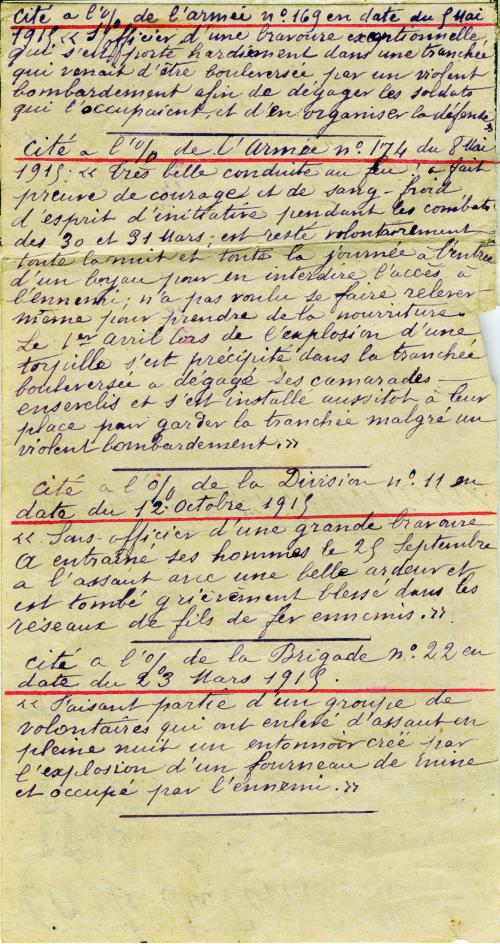 Cité a l'o/o de l'armée n°. 169 en date du 5 Mai
1915 « S/officier d'une bravoure exeptionnelle,
qui s'est porté hardiement dans une tranchée
qui venait d'être bouleversée par un violent
bombardement afin de dégager les soldats
qui l'occupaient, et d'en organiser la défense »
Cité a l'o/o de l'Armée n°. 174 du 8 Mai
1915: « Très belle conduite au feu, a fait
preuve de courage et de sang-froid
d'esprit d'initiative pendant les combats
des 30 et 31 Mars; est resté volontairement
toute la nuit et toute la journée à l'entrée
d'un boyau pour en interdire l'accès à
l'ennemi; n'a pas voulu se faire relever
même pour prendre de la nourriture.
Le 1er Avril lors de l'explosion d'une
torpille s'est précipité dans la tranchée
bouleversée a dégagé ses camarades
enserclis et s'est installé aussitot à leur
place pour garder la tranchée malgré un
violent bombardement. »
Cité a l'o/o de la Division n°. 11 en
date du 12 Octobre 1915
« Sous-officier d'une grande bravoure
a entraîné ses hommes le 25 Septembre
a l'assaut avec une belle ardeur et
est tombé grièrement blessé dans les
réseaux de fils de fer ennemis. »
Cité a l'o/o de la Brigade n°. 22 en
date du 23 Mars 1915.
« Faisant partie d'un groupe de
volontaires qui ont enlevé d'assaut en
pleine nuit un entonnoir créé par
l'explosion d'un fourneau de mine
et occupé par l'ennemi. »